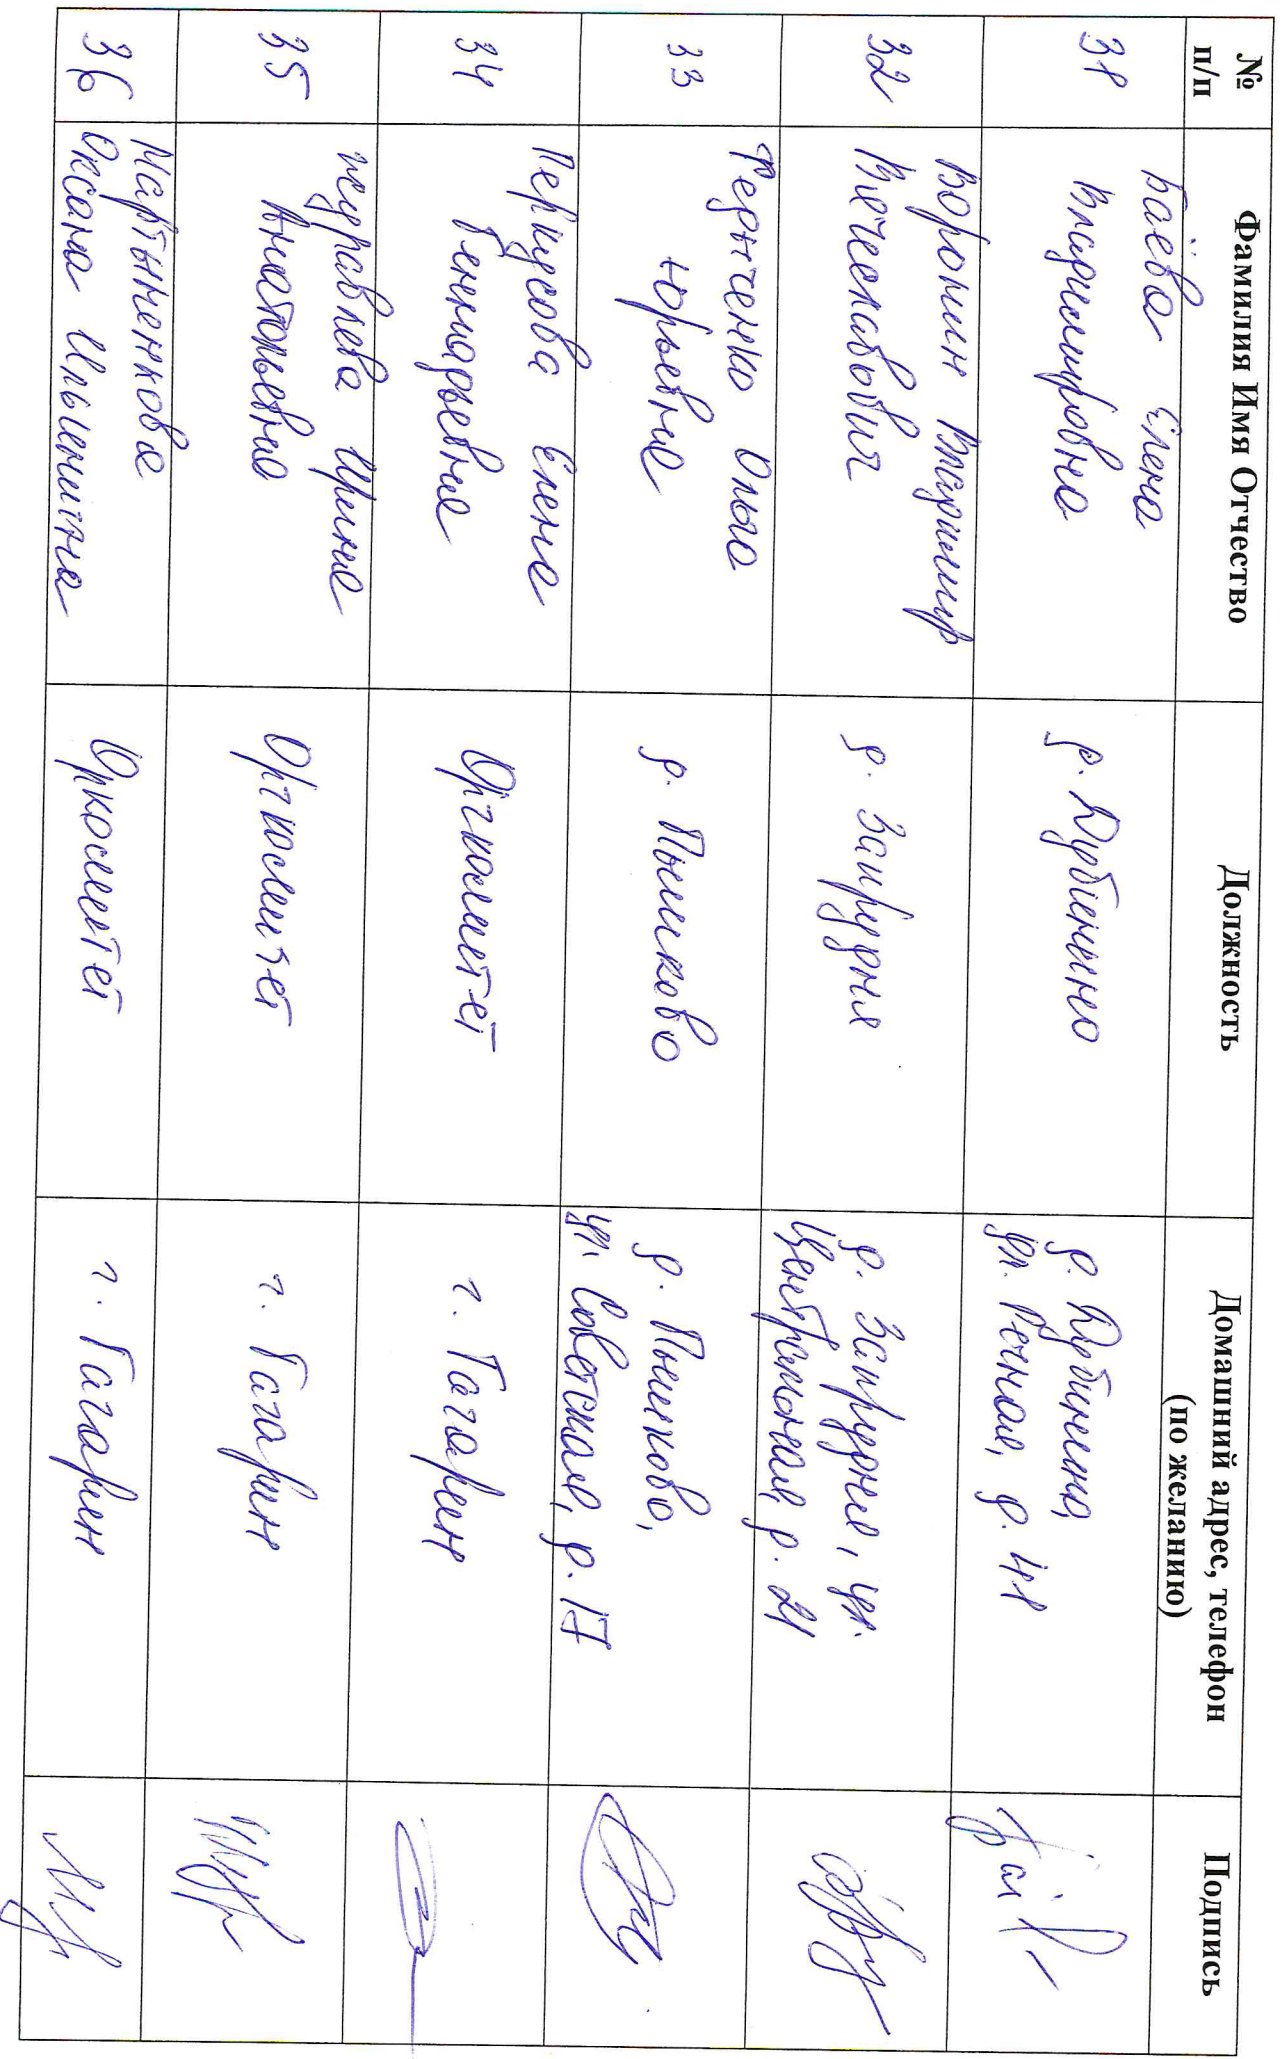 №
п/п
Фамилия Имя Отчество
Должность
Домашний адрес, телефон
(по желанию)
Подпись
31
Баёва Елена
Владимировна
д. Дубинино
д. Дубинино,
ул. Речная, д. 41
32
Воронин Владимир
Вячеславович
д. Запрудня
д. Запрудня, ул.
Центральная, д. 21
33
Федюченко Ольга
Юрьевна
д. Поликово
д. Поликово,
ул. Советская, д. 17
34
Перцусова Елена
Геннадьевна
Оргкомитет
г. Гагарин
35
Журавлева Ирина
Анатольевна
Оргкомитет
г. Гагарин
36
Мартыненкова
Оксана Ильинична
Оркомитет
г. Гагарин